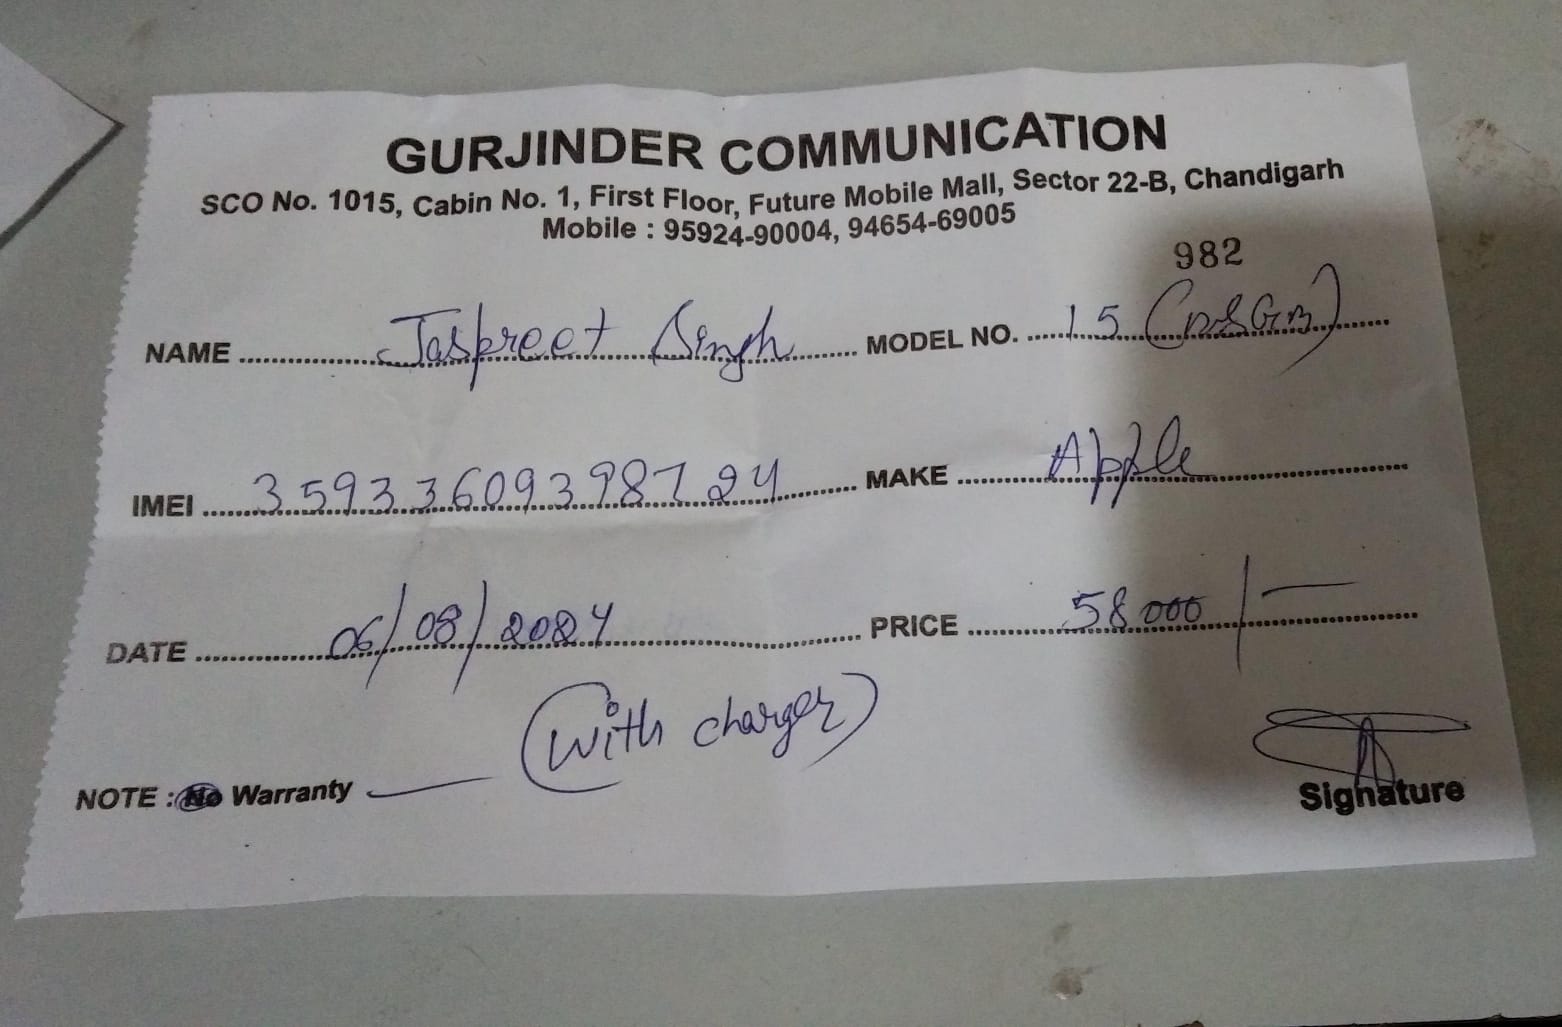 GURJINDER COMMUNICATION
SCO No. 1015, Cabin No. 1, First Floor, Future Mobile Mall, Sector 22-B, Chandigarh
Mobile : 95924-90004, 94654-69005
982
NAME Jaspreet Singh MODEL NO. 15
IMEI 359336093987124 MAKE Apple
DATE 06/08/2024 PRICE 58000/-
(With charger)
NOTE : No Warranty
Signature